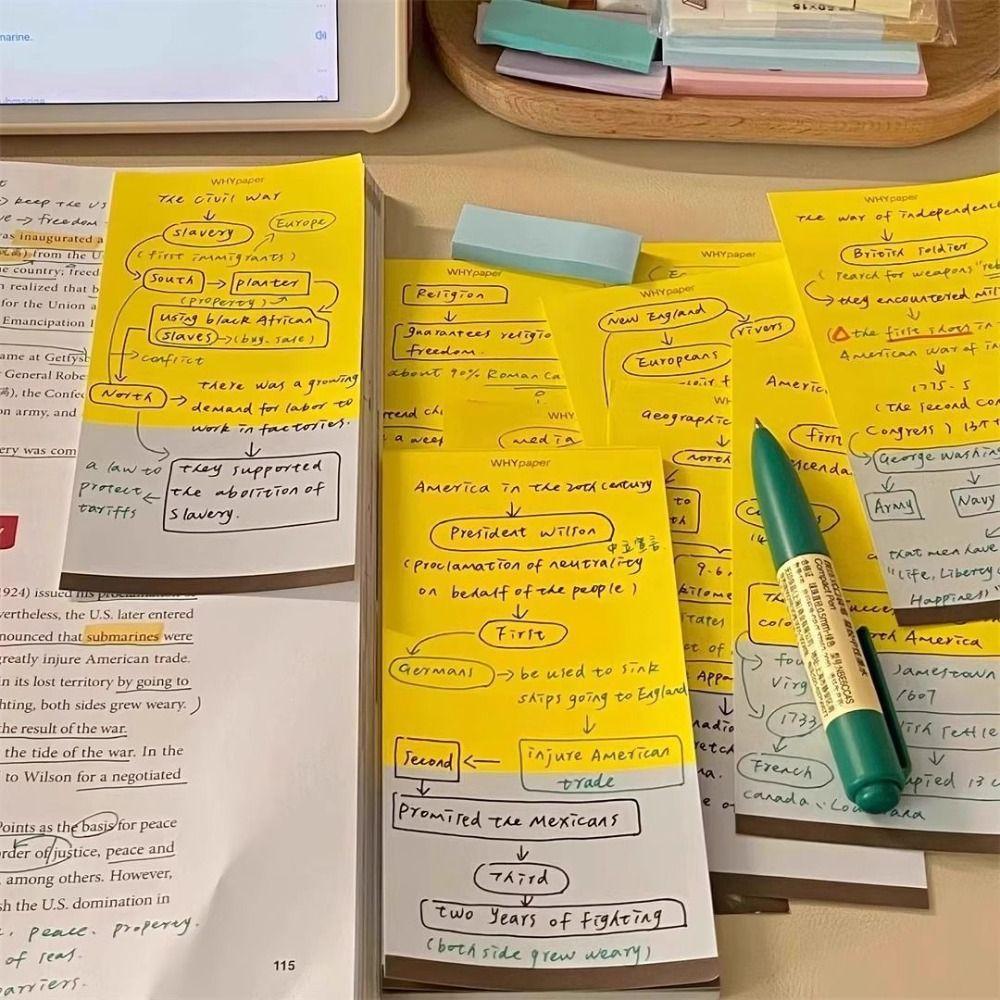 marine.
keep the US
freedom
was inaugurated a
from the U
e country; freed
n realized that b
for the Union a
Emancipation
ame at Gettysb
General Robe
the Confed
on army, and
ery was com
1924) issued his proclamation of
vertheless, the U.S. later entered
nounced that submarines were
greatly injure American trade.
in its lost territory by going to
hting, both sides grew weary.
the result of the war.
the tide of the war. In the
to Wilson for a negotiated
Points as the basis for peace
order of justice, peace and
, among others. However,
sh the U.S. domination in
peace. property.
of seas.
barriers.
115
WHYpaper
The civil war
slavery
Europe
(first immigrants)
South → planter
(property)
using black African
slaves → (buy. sale)
conflict
North → there was a growing
demand for labor to
work in factories.
a law to
protect
tariffs
they supported
the abolition of
slavery.
WHYpaper
Religion
guarantees religio
freedom.
about 90% Roman Ca
a week
WH
media
WHYpaper
WHYpaper
New England
rivers
Europeans
WH
Geographic
north
to
9.6
kilome
states
of
Appa
WHYpaper
America in the 20th century
President Wilson
中立宣言
(proclamation of neutrality
on behalf of the people)
First
Germans → be used to sink
ships going to England
injure American
trade
Second
Promised the Mexicans
Third
two years of fighting
(both side grew weary)
Americ
first
scenda
colo
North America
fou
Virg
Jamestown
1607
1733
French
ish settle
upied 13 c
Canada, Louisiana
Compact Pen
WHYpaper
The war of independenc
British soldier
(search for weapons "reb
they encountered mil
the first shots in
American war of in
1775-5
(the second Con
Congress)
George Washing
Army
Navy
that men have
"Life, Liberty
Happiness"